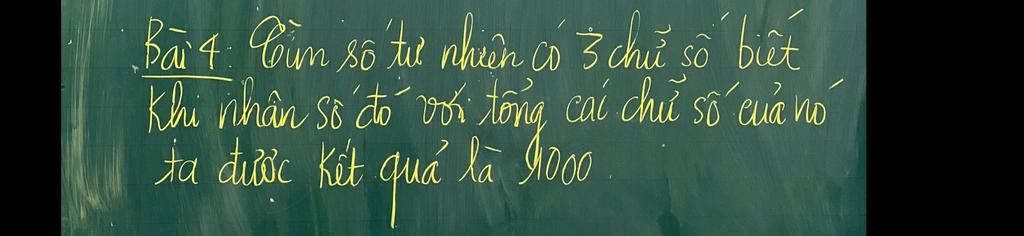 Bài 4: Tìm số tự nhiên có 3 chữ số biết
Khi nhân số đó với tổng cái chữ số của nó
ta được kết quả là 1000.